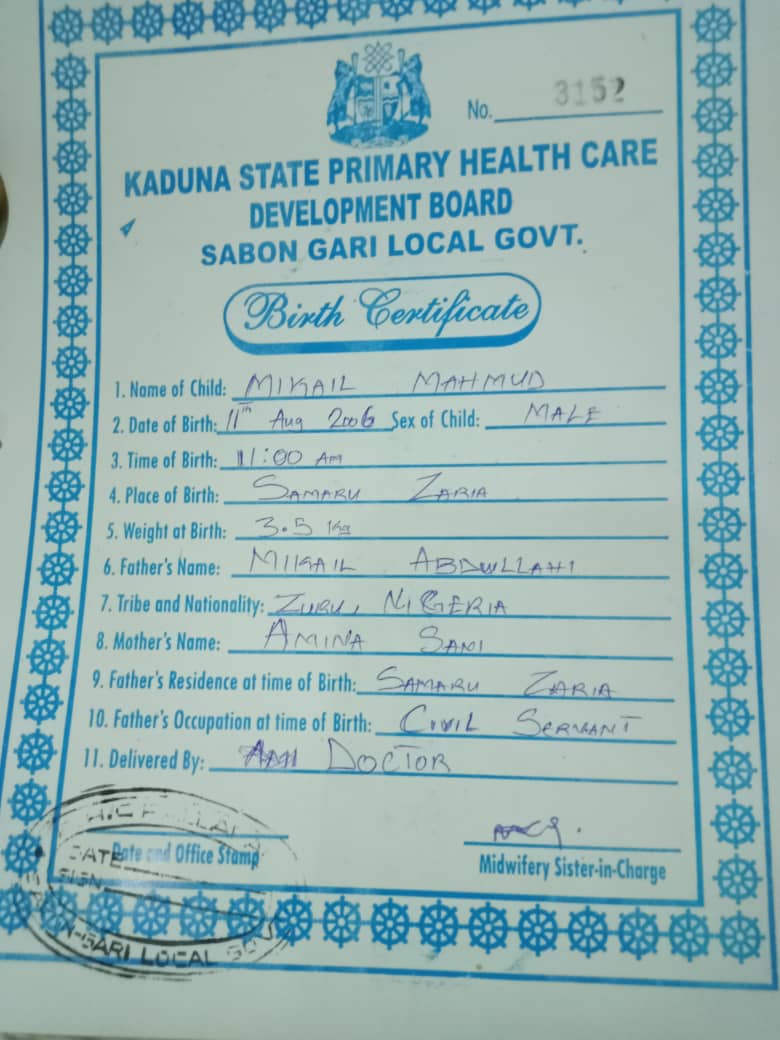 No. 3152
KADUNA STATE PRIMARY HEALTH CARE
DEVELOPMENT BOARD
SABON GARI LOCAL GOVT.
Birth Certificate
1. Name of Child: MIKAIL MAHMUD
2. Date of Birth: 11th Aug 2006 Sex of Child: MALE
3. Time of Birth: 11:00 AM
4. Place of Birth: SAMARU ZARIA
5. Weight at Birth: 3.5 Kg
6. Father's Name: MIKAIL ABDULLAHI
7. Tribe and Nationality: ZURU, NIGERIA
8. Mother's Name: AMINA SANI
9. Father's Residence at time of Birth: SAMARU ZARIA
10. Father's Occupation at time of Birth: CIVIL SERVANT
11. Delivered By: DOCTOR
Date and Office Stamp
Midwifery Sister-in-Charge
DATE
SIGN
LOCAL